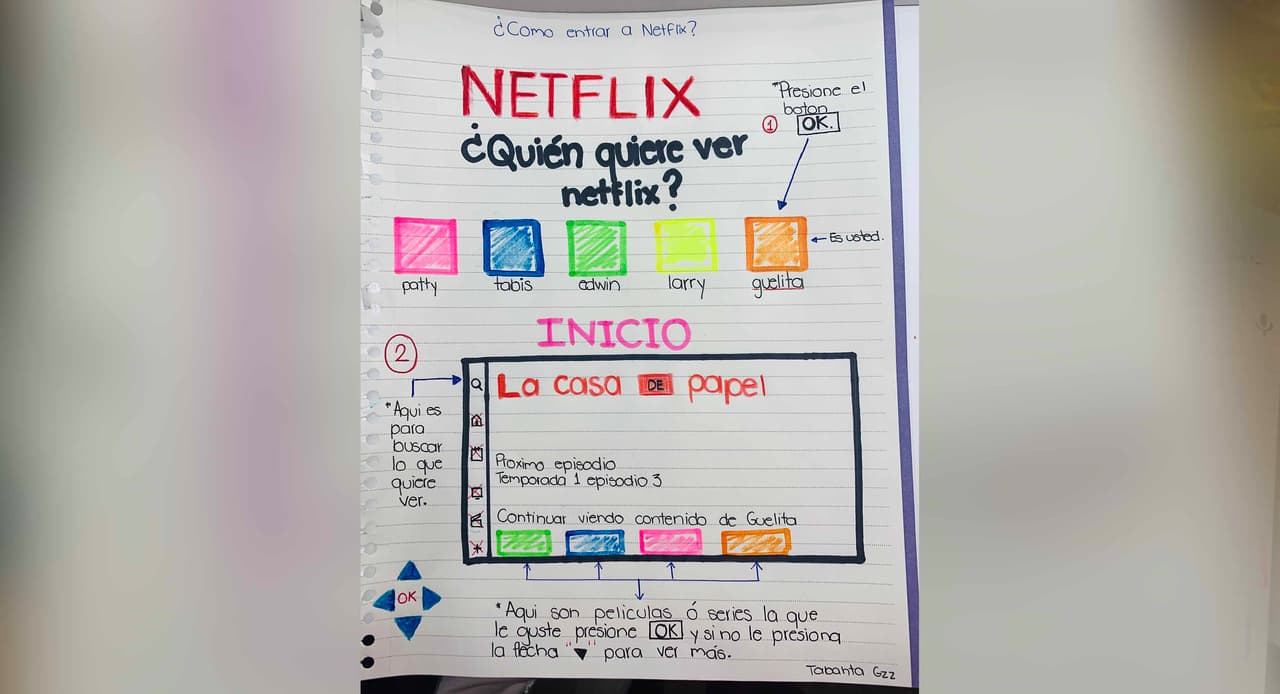 ¿Como entrar a Netflix?
NETFLIX
*Presione el
boton
① OK.
¿Quién quiere ver
netflix?
← Es usted.
patty tabis edwin larry guelita
INICIO
②
La casa DE papel
*Aqui es
para
buscar
lo que
quiere
ver.
Proximo episodio
Temporada 1 episodio 3
Continuar viendo contenido de Guelita
OK
*Aqui son peliculas ó series la que
le guste presione OK y si no le presiona
la flecha "▼" para ver más.
Tabanta Gzz